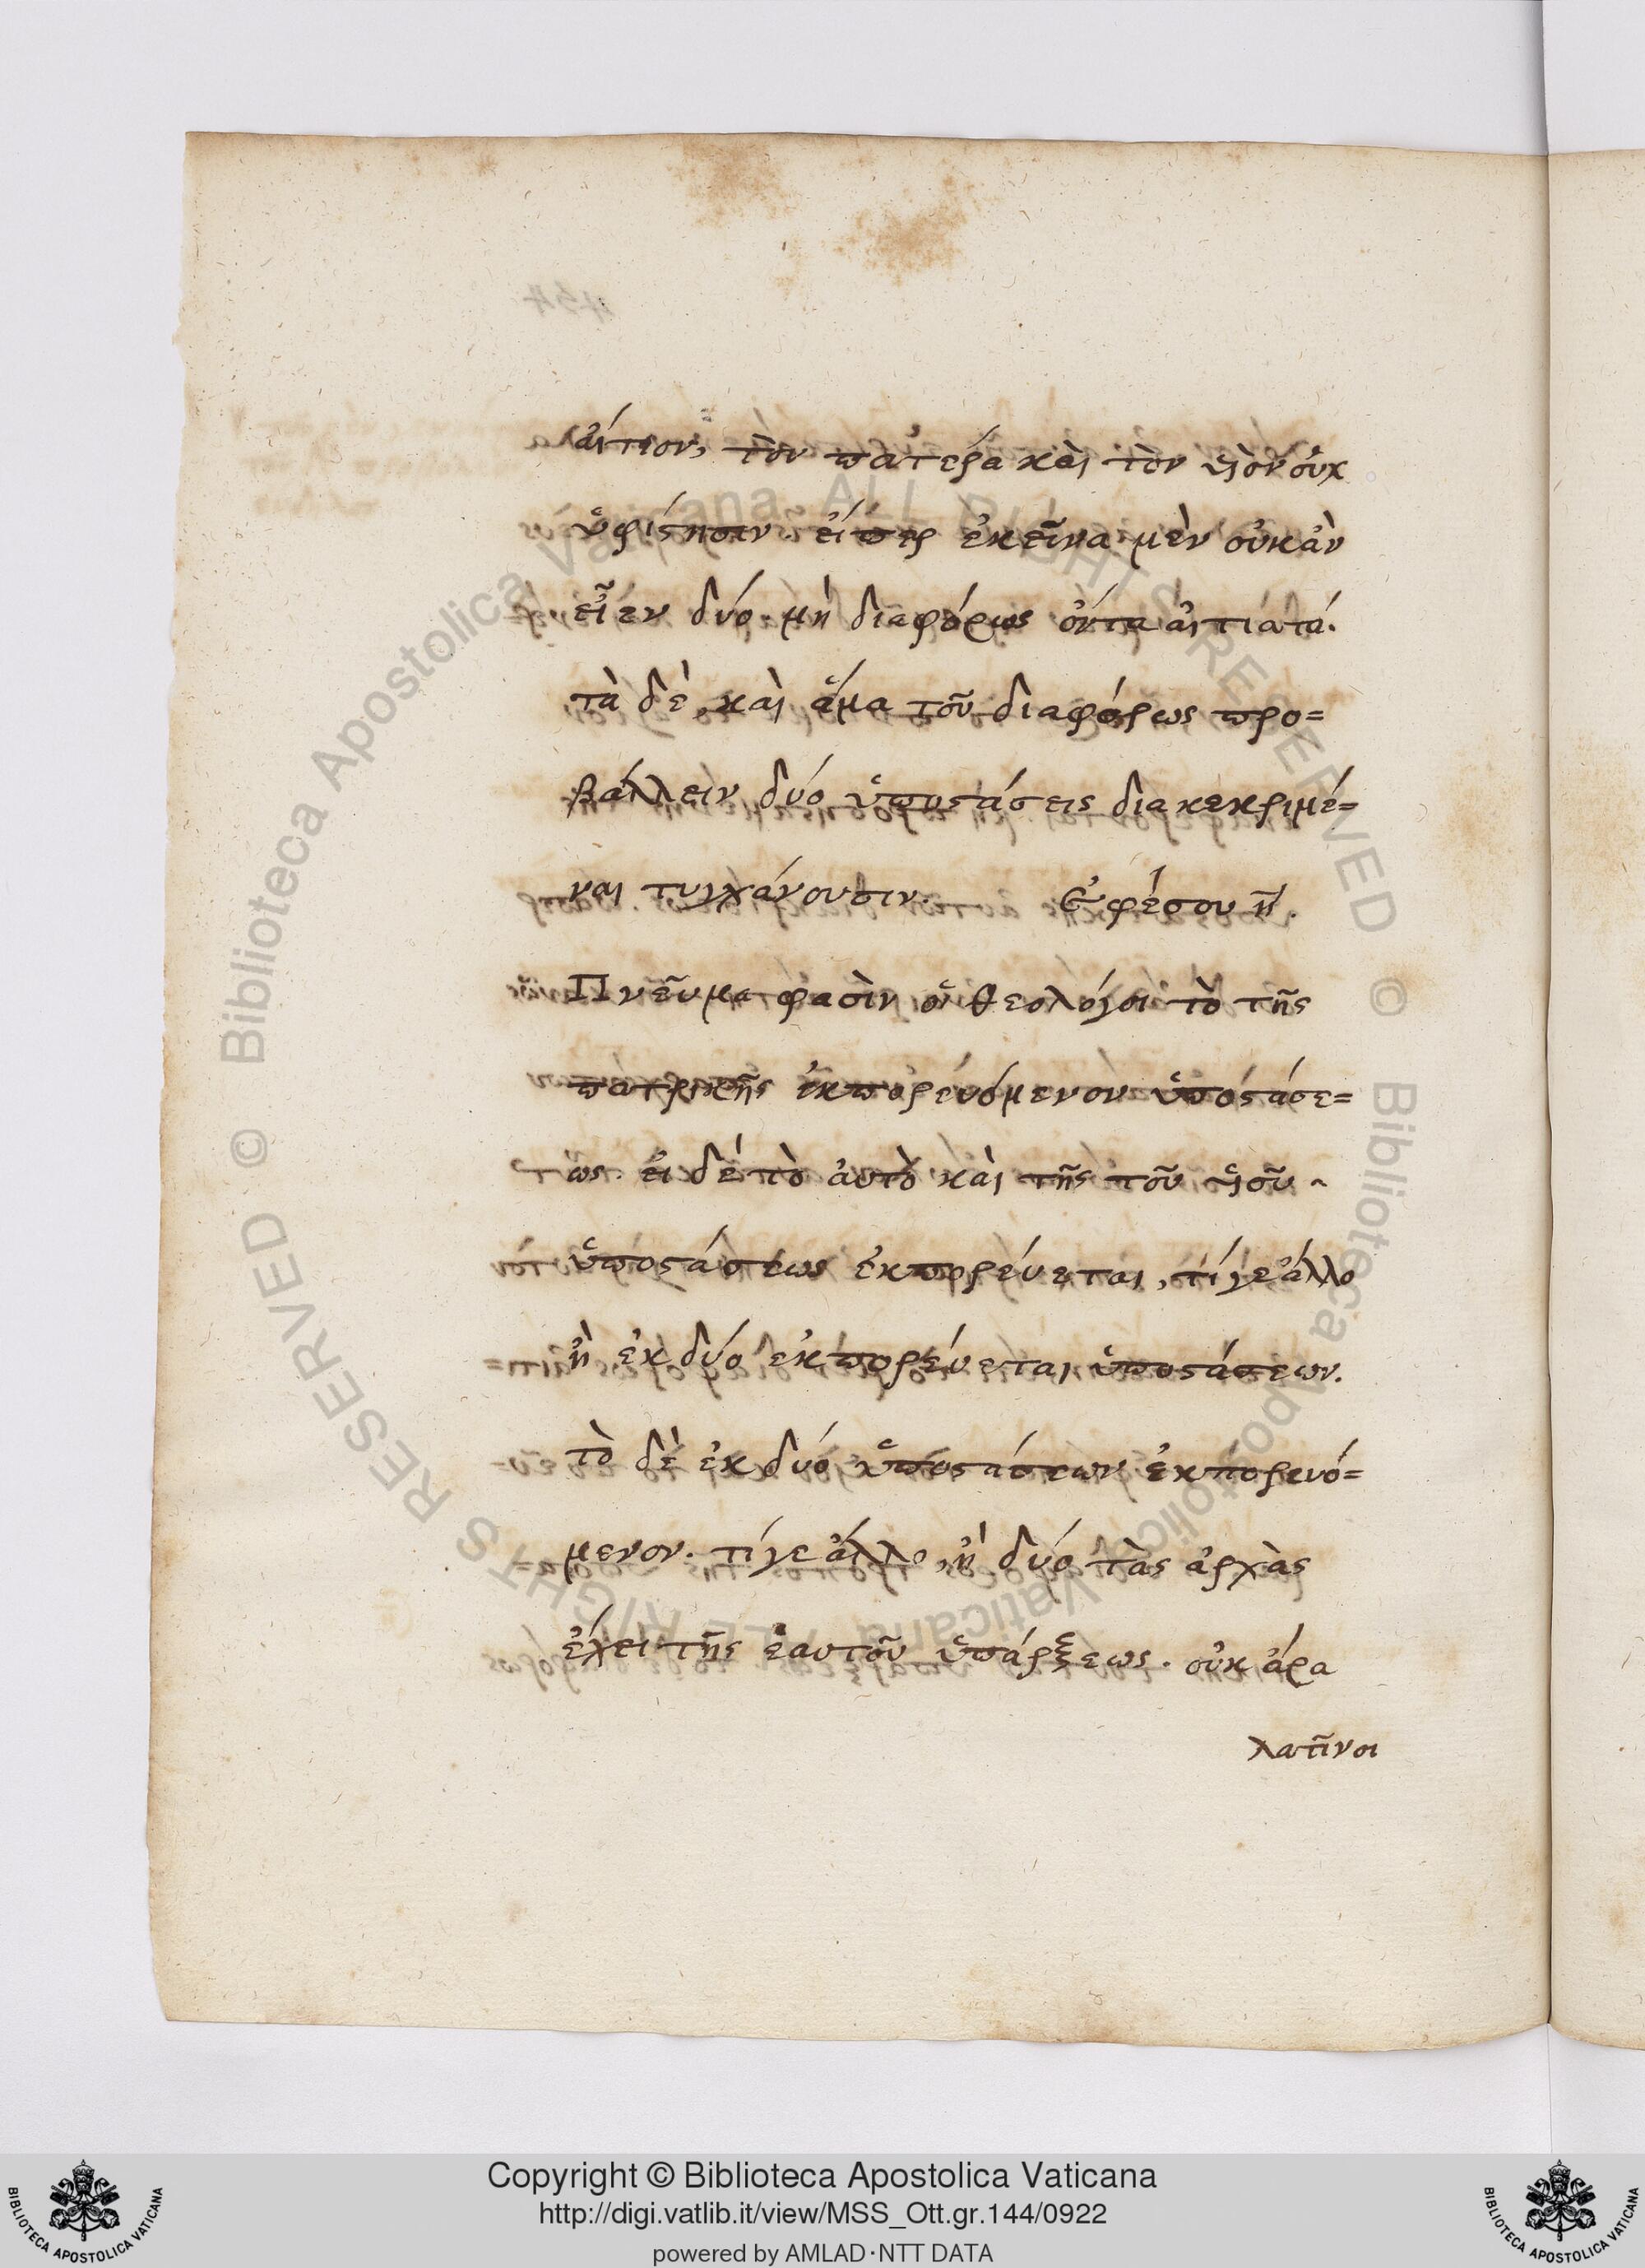 αἴτιον, τὸν πατέρα καὶ τὸν υἱὸν οὐχ
ὑφίστησιν. εἴπερ ἐκεῖνα μὲν οὐκ ἂν
εἶεν δύο μὴ διαφόρως ὄντα αἰτιατά.
τὰ δὲ, καὶ ἅμα τοῦ διαφόρως προ=
βάλλειν δύο ὑποστάσεις διακεκριμέ=
ναι τυγχάνουσιν. Ἐφέσου η.
Πνεῦμα φασὶν οἱ θεολόγοι τὸ τῆς
πατρικῆς ἐκπορευόμενον ὑποστάσε=
ως. εἰ δὲ τὸ αὐτὸ καὶ τῆς τοῦ υἱοῦ
ὑποστάσεως ἐκπορεύεται, τί γε ἄλλο
ἢ ἐκ δύο ἐκπορεύεται ὑποστάσεων.
τὸ δὲ ἐκ δύο ὑποστάσεων ἐκπορευό=
μενον. τί γε ἄλλο, ἢ δύο τὰς ἀρχὰς
ἔχει τῆς ἑαυτοῦ ὑπάρξεως. οὐκ ἄρα
λατῖνοι
© Biblioteca Apostolica Vaticana, ALL RIGHTS RESERVED
© Biblioteca Apostolica Vaticana, ALL RIGHTS RESERVED
Copyright © Biblioteca Apostolica Vaticana
http://digi.vatlib.it/view/MSS_Ott.gr.144/0922
powered by AMLAD·NTT DATA
BIBLIOTECA APOSTOLICA VATICANA
BIBLIOTECA APOSTOLICA VATICANA